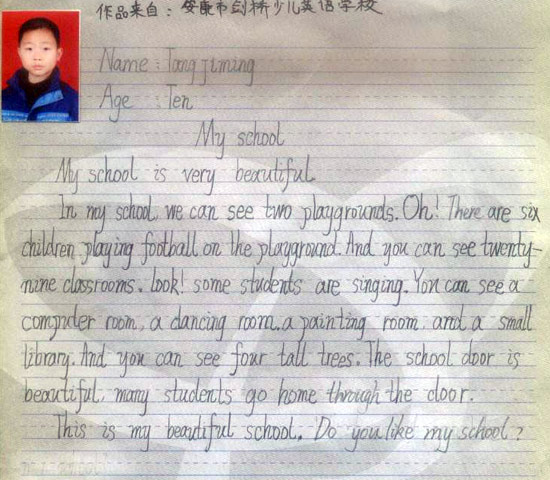 作品来自：安康市剑桥少儿英语学校
Name : Tang jiming
Age : Ten
My school
My school is very beautiful.
In my school we can see two playgrounds. Oh! There are six
children playing football on the playground. And you can see twenty-
nine classrooms. look! some students are singing. You can see a
computer room, a dancing room, a painting room and a small
library. And you can see four tall trees. The school door is
beautiful, many students go home through the door.
This is my beautiful school. Do you like my school?